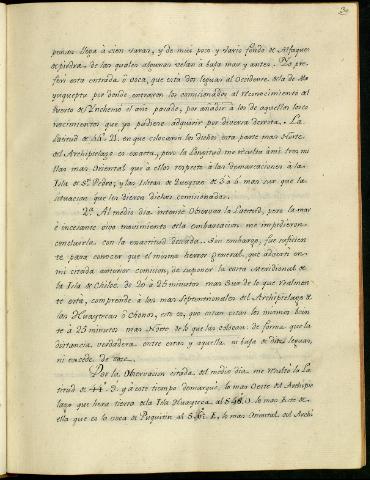 penas llega à cien varas, y de mui poco y vario fondo de Alfaques
de piedra, de los quales algunos velan à baja mar y antes. Pre
feri esta entrada ò voca, que esta dos leguas al Occidente de la de Mo
yuguepto por donde entraron los comicionados al reconocimiento del
Puerto de Ynchemò el año pasado, por añadir à los de aquellos los co
nocimientos que yo pudiese adquirir por diversa derrota. La
Latitud de 44° 21. en que colocaron los dichos esta parte mas Norte
del Archipielago es exacta, pero la Longitud me resulta à mi tres mi
llas mas Oriental que à ellos respecto à las demarcaciones à las
Isla de Sn. Pedro, y las Islitas de Queytao de 3 à 6 mas sur que la
situacion que les dieron dichos comicionados.
2.a Al medio dia intenté Observar la Latitud, pero la mar
è incesante vivo movimiento de la embarcacion me impidieron
concluirla con la exactitud deseada. Sin embargo, fue suficien
te para conocer que el mismo herror general, que adverti en
mi citada anterior comicion, de suponer la costa Meridional de
la Isla de Chiloe de 20 à 25 minutos mas Sur de lo que realmen
te està, comprende à las mas Septentrionales del Archipielago de
las Huaytecas ò Chonos, esto es, que estan estas los mismos vein
te à 25 minutos mas Norte de lo que las colocan: de forma que la
distancia verdadera entre estas y aquella ni baja de diez leguas,
ni excede de once.
Por la Observacion citada del medio dia me resultò la La
titud de 44° S. y à este tiempo demarquè, lo mas Oeste del Archipie
lago que hera tierra de la Isla Huayteca al S 48° O. lo mas Este de
ella que es la voca de Puquitin al S. E. lo mas Oriental del Archi